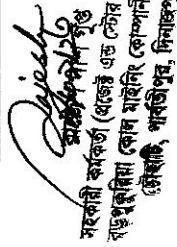 Rajesh
সহকারী কর্মকর্তা (প্রজেক্ট এন্ড স্টোর
বড়পুকুরিয়া কোল মাইনিং কোম্পানি
চৌহাটি, পার্বতীপুর, দিনাজপু